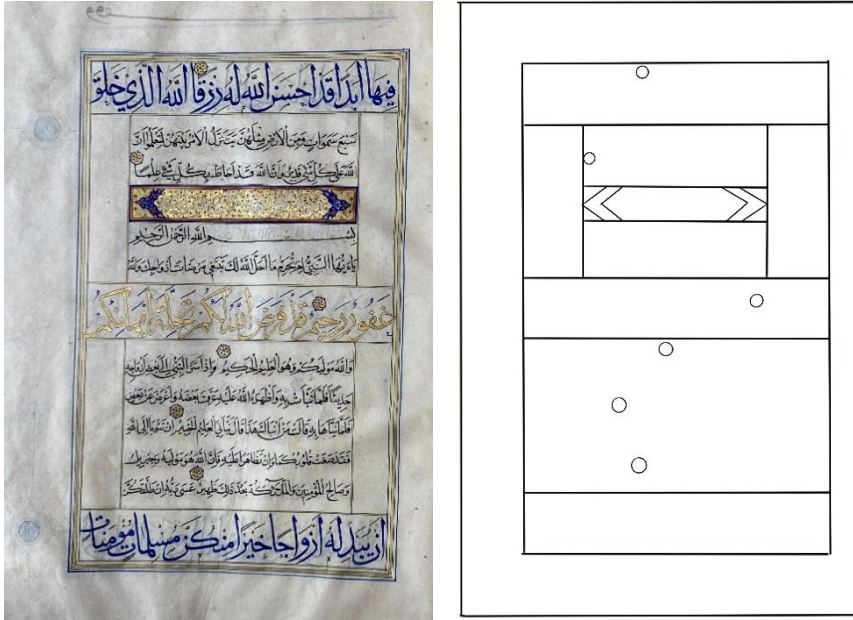 فِيهَا اَبَدًا قَدْ اَحْسَنَ اللّٰهُ لَهُ رِزْقًا اَللّٰهُ الَّذِي خَلَقَ
سَبْعَ سَمٰوَاتٍ وَمِنَ الْاَرْضِ مِثْلَهُنَّ يَتَنَزَّلُ الْاَمْرُ بَيْنَهُنَّ لِتَعْلَمُوا اَنَّ
اللّٰهَ عَلٰى كُلِّ شَيْءٍ قَدِيرٌ وَاَنَّ اللّٰهَ قَدْ اَحَاطَ بِكُلِّ شَيْءٍ عِلْمًا
بِسْمِ اللّٰهِ الرَّحْمٰنِ الرَّحِيْمِ
يَاءَيُّهَا النَّبِيُّ لِمَ تُحَرِّمُ مَا اَحَلَّ اللّٰهُ لَكَ تَبْتَغِي مَرْضَاتَ اَزْوَاجِكَ وَاللّٰهُ
غَفُورٌ رَحِيمٌ قَدْ فَرَضَ اللّٰهُ لَكُمْ تَحِلَّةَ اَيْمَانِكُمْ
وَاللّٰهُ مَوْلٰيكُمْ وَهُوَ الْعَلِيمُ الْحَكِيمُ وَاِذْ اَسَرَّ النَّبِيُّ اِلٰى بَعْضِ اَزْوَاجِهِ
حَدِيثًا فَلَمَّا نَبَّاَتْ بِهِ وَاَظْهَرَهُ اللّٰهُ عَلَيْهِ عَرَّفَ بَعْضَهُ وَاَعْرَضَ عَنْ بَعْضٍ
فَلَمَّا نَبَّاَهَا بِهِ قَالَتْ مَنْ اَنْبَاَكَ هٰذَا قَالَ نَبَّاَنِيَ الْعَلِيمُ الْخَبِيرُ اِنْ تَتُوبَا اِلَى اللّٰهِ
فَقَدْ صَغَتْ قُلُوبُكُمَا وَاِنْ تَظَاهَرَا عَلَيْهِ فَاِنَّ اللّٰهَ هُوَ مَوْلٰيهُ وَجِبْرِيلُ
وَصَالِحُ الْمُؤْمِنِينَ وَالْمَلٰئِكَةُ بَعْدَ ذٰلِكَ ظَهِيرٌ عَسٰى رَبُّهُ اِنْ طَلَّقَكُنَّ
اَنْ يُبْدِلَهُ اَزْوَاجًا خَيْرًا مِنْكُنَّ مُسْلِمَاتٍ مُؤْمِنَاتٍ